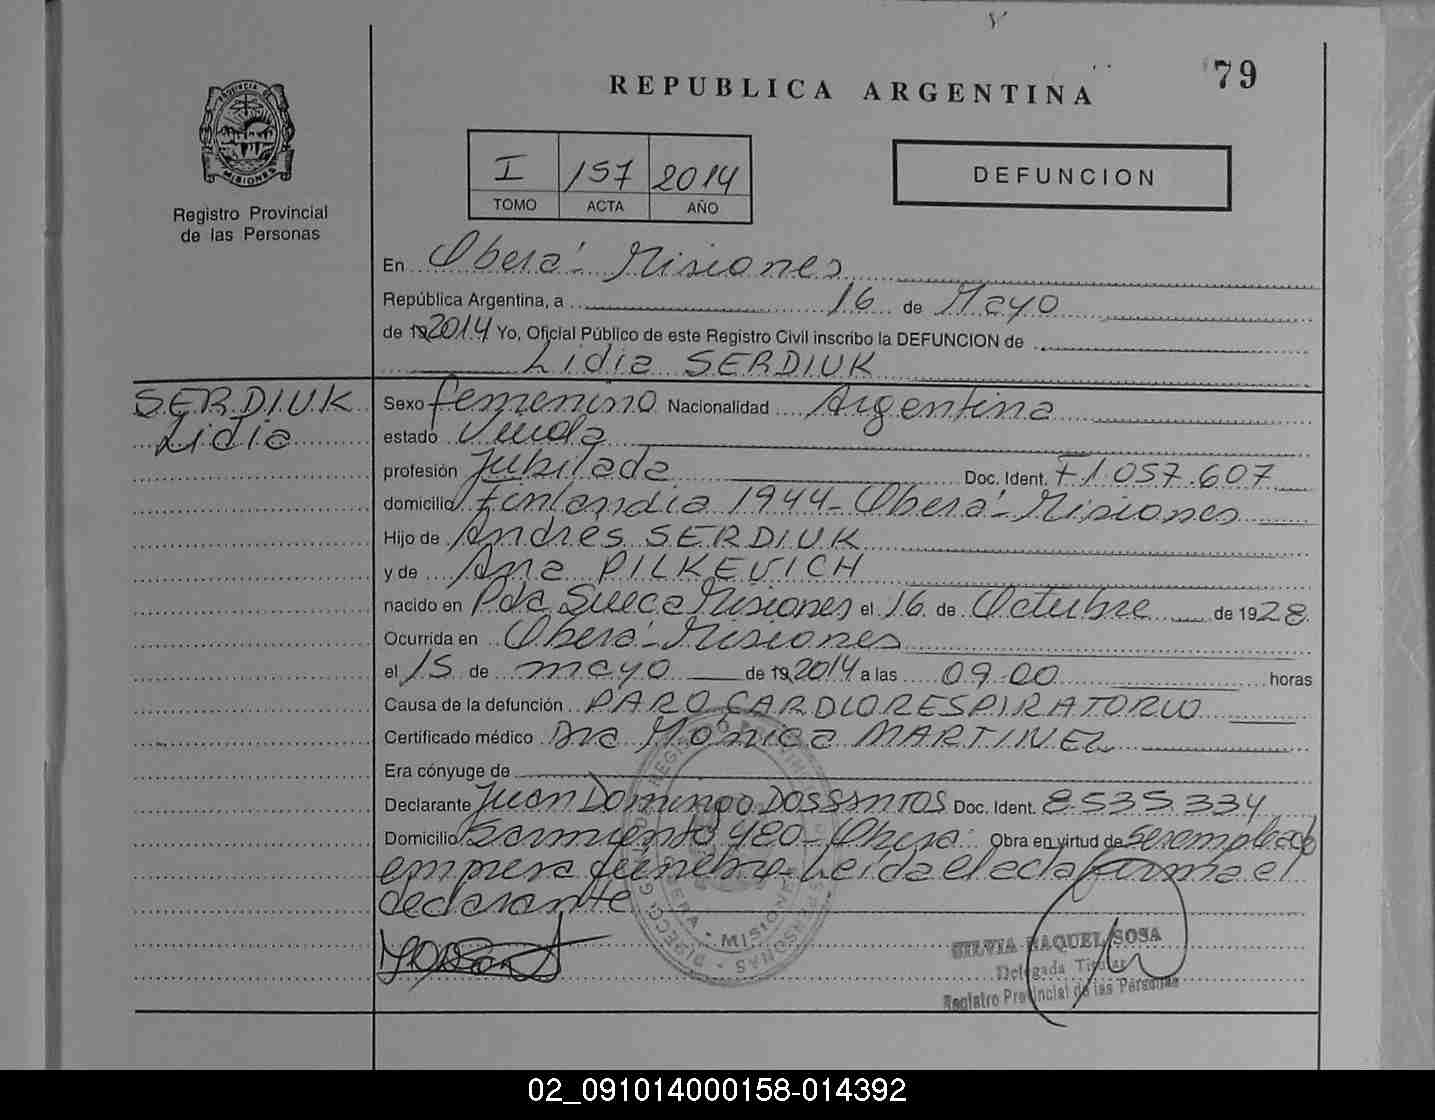 79
REPUBLICA ARGENTINA
PROVINCIA DE
MISIONES
Registro Provincial
de las Personas
I 157 2014
TOMO ACTA AÑO
DEFUNCION
En Oberá - Misiones
República Argentina, a 16 de Mayo
de 19 2014 Yo, Oficial Público de este Registro Civil inscribo la DEFUNCION de
Lidia SERDIUK
SERDIUK
Lidia
Sexo femenino Nacionalidad Argentina
estado Viuda
profesión Jubilada Doc. Ident. F1.057.607
domicilio Finlandia 1944 - Oberá - Misiones
Hijo de Andrés SERDIUK
y de Ana PILKEVICH
nacido en Pda Sueca Misiones el 16 de Octubre de 1928
Ocurrida en Oberá - Misiones
el 15 de mayo de 19 2014 a las 09.00 horas
Causa de la defunción PARO CARDIORESPIRATORIO
Certificado médico Dra Mónica MARTINEZ
Era cónyuge de
Declarante Juan Domingo DOSSANTOS Doc. Ident. 8.535.334
Domicilio Sarmiento 480 - Oberá Obra en virtud de ser empleado
empresa fúnebre - Leída el acta firma el
declarante
MISIONES
SILVIA RAQUEL SOSA
Delegada Titular
Registro Provincial de las Personas
02_091014000158-014392